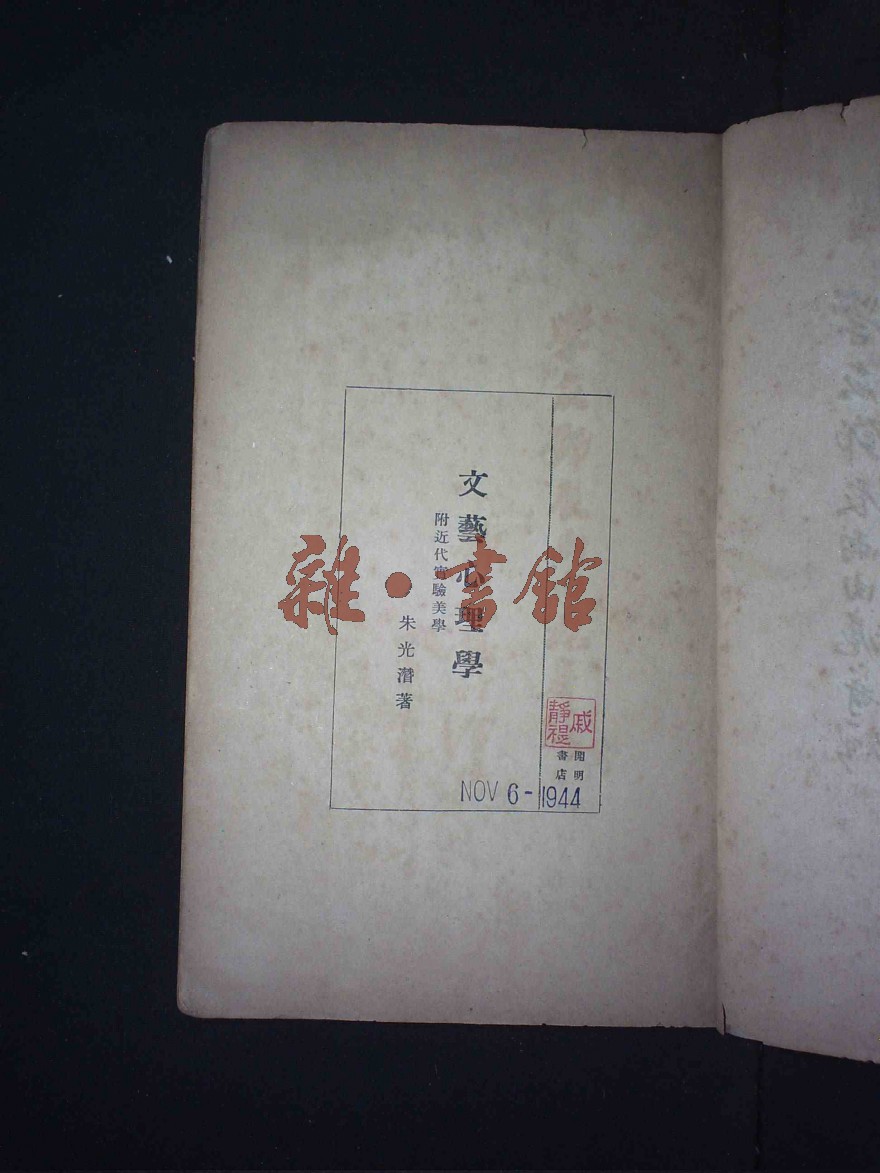 文藝心理學
附近代實驗美學
朱光潛著
開明
書店
戚
靜禔
NOV 6 - 1944
雜·書館